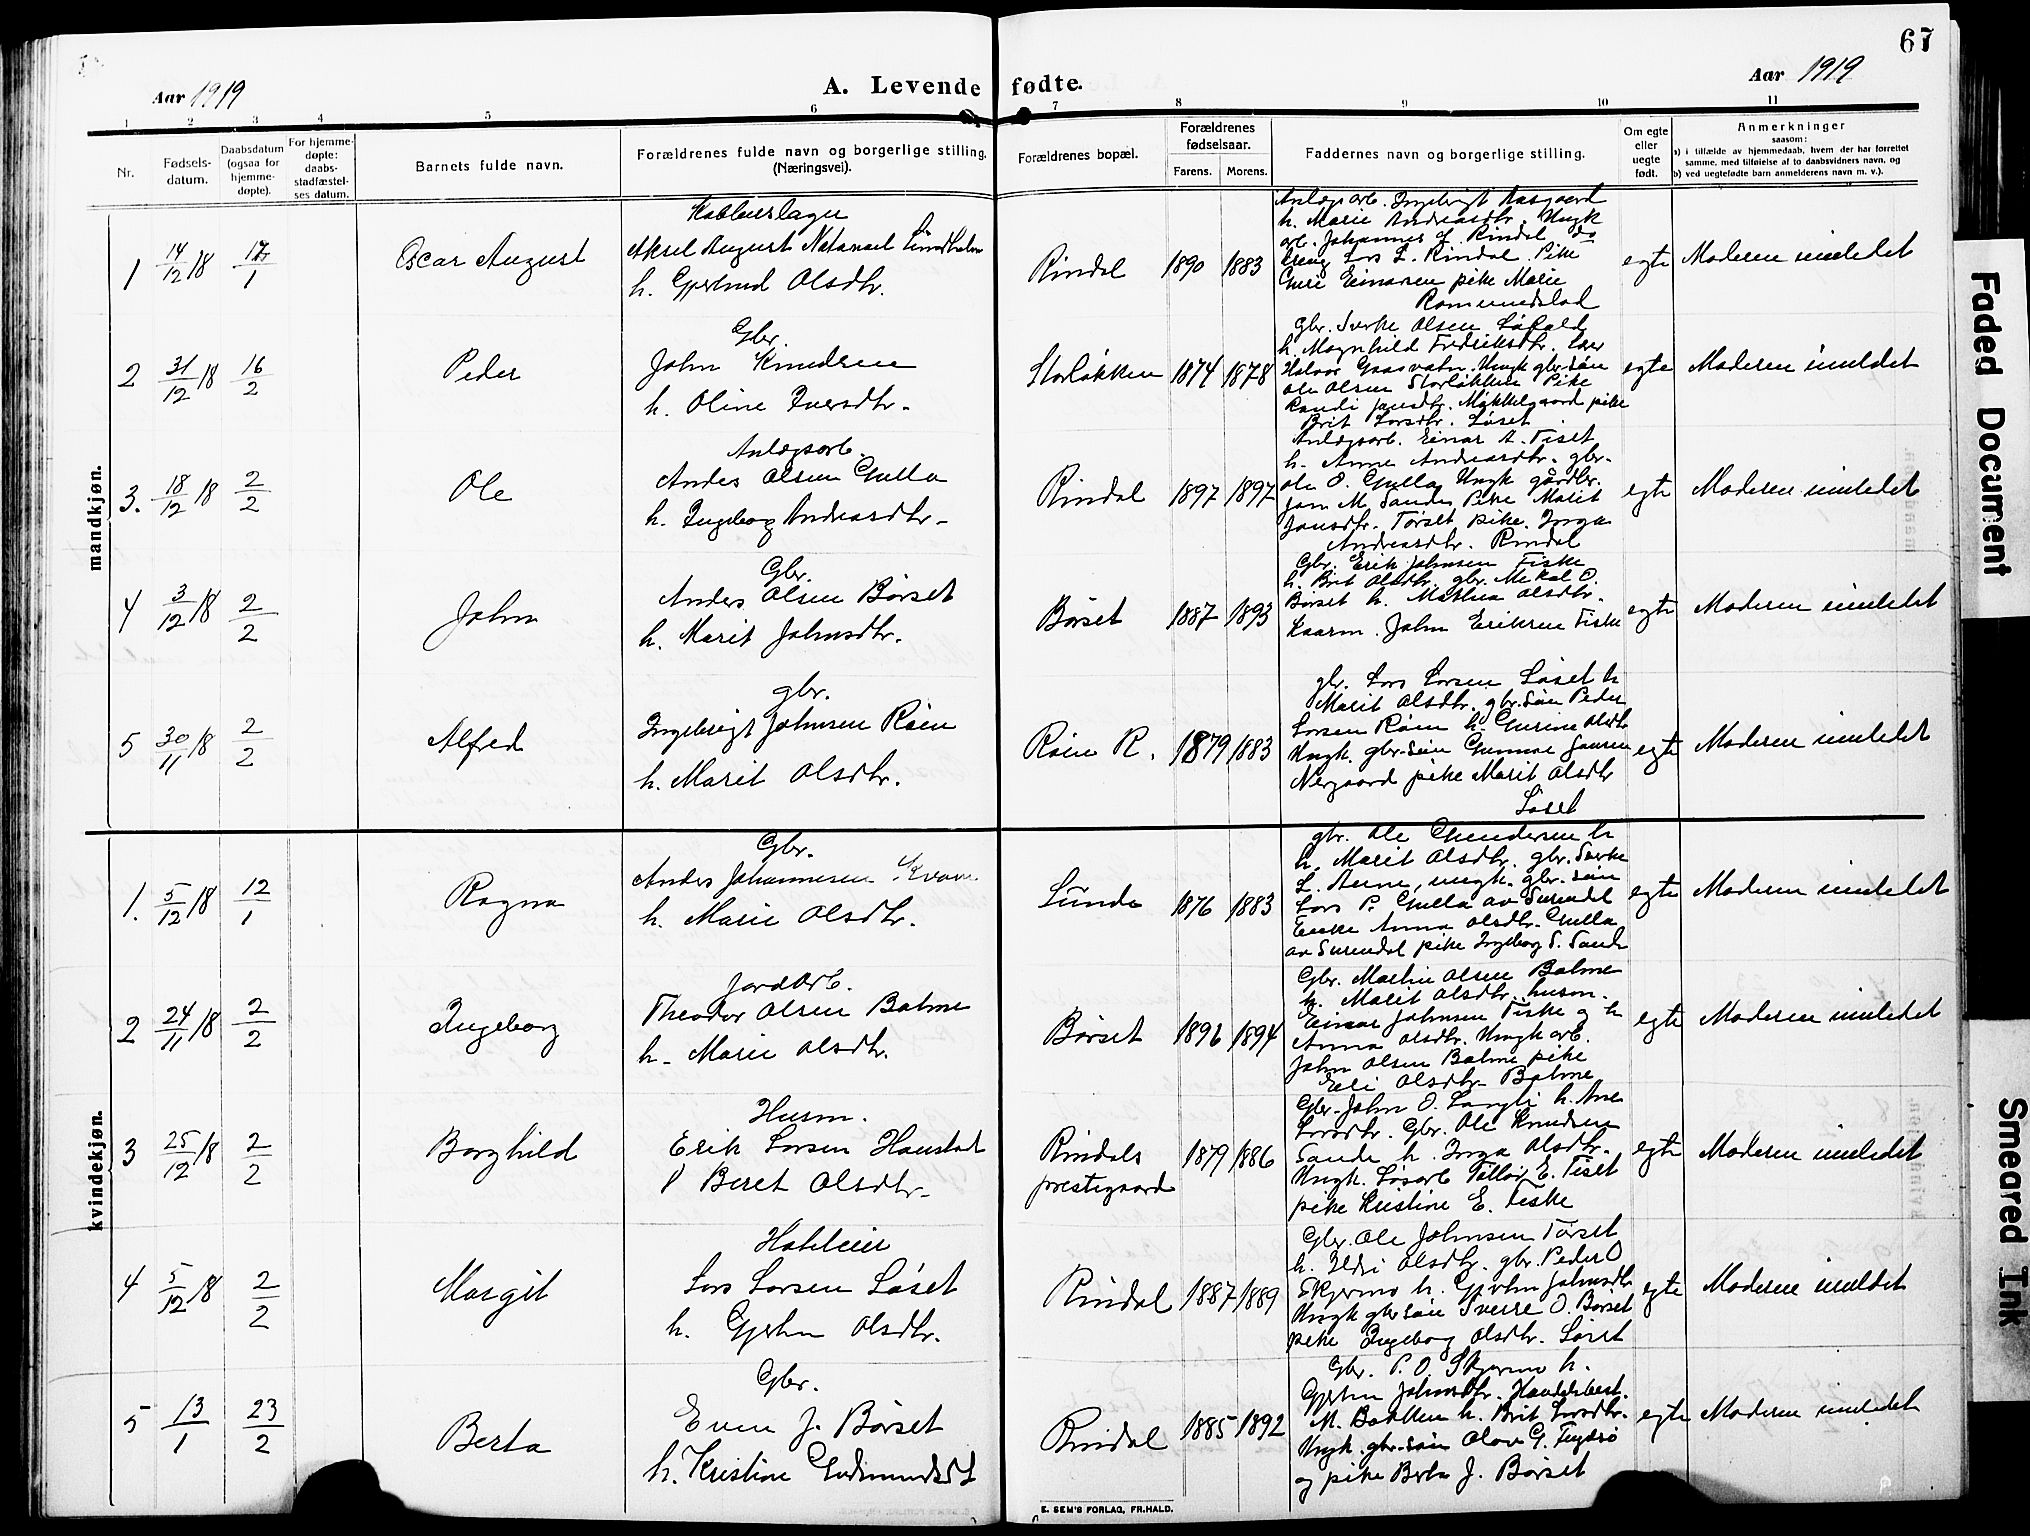 67
Aar 1919
A. Levende fødte.
Aar 1919
1 2 3 4 5 6 7 8 9 10 11
Nr.
Fødsels-
datum.
Daabsdatum
(ogsaa for
hjemme-
døpte).
For hjemme-
døpte:
daabs-
stadfæstel-
ses datum.
Barnets fulde navn.
Forældrenes fulde navn og borgerlige stilling.
(Næringsvei).
Forældrenes bopæl.
Forældrenes
fødselsaar.
Farens. Morens.
Faddernes navn og borgerlige stilling.
Om egte
eller
uegte
født.
Anmerkninger
saasom:
a) i tilfælde av hjemmedaab, hvem der har forrettet
samme, med tilføielse af to daabsvidners navn, og
b) ved uegtefødte barn anmelderens navn m. v.).
mandkjøn.
1 14/12 18 17/1 Oscar August
Aksel August Natanael
h. Gjertrud Olsdtr.
Rindal 1890 1883
Anlægsarb. Ingebrigt Aasgaard
h. Marie Andreasdtr. Ungk
arb. Johannes Rindal do
Lars L. Rindal Pike
Guri Einarsen pike Marie
Romundstad
egte Moderen innledet
2 31/12 18 16/2 Peder
Gbr.
John Knudsen
h. Oline Iversdtr.
Storløkken 1874 1878
gbr. Sverke Olsen Løfald
h. Magnhild Fredriksdtr.
Halvor Gaasvatn. Ungk gbr.søn
Ole Olsen Storløkken Pike
Randi Jansdtr. Mikkelgaard pike
Brit Larsdtr. Løset
egte Moderen innledet
3. 18/12 18 2/2 Ole
Anlægsarb.
Anders Olsen Gulla
h. Ingeborg Andreasdtr.
Rindal 1897 1897
Anlægsarb. Einar A. Tiset
h. Anne Andreasdtr. gbr.
Ole O. Gulla Ungk gårdbr.
Jon M. Sande Pike Marit
Jonsdtr. Torset pike. Inga
Andreasdtr. Rindal
egte Moderen innledet
4 3/12 18 2/2 John
Gbr.
Anders Olsen Børset
h. Marit Johnsdtr.
Børset 1887 1893
Gbr. Erik Johnsen Fiske
h. Brit Olsdtr. gbr. Mikal O.
Børset h. Mathea Olsdtr.
John Eriksen Fiske
egte Moderen innledet
5 30/11 18 2/2 Alfred
gbr.
Ingebrigt Johnsen Røen
h. Marit Olsdtr.
Røen R. 1879 1883
gbr. Lars Larsen Løset h
Marit Olsdtr. gbr.søn Peder
Larsen Røen h. Gurine Olsdtr
Ungk. gbr.søn Gunnar Jonsen
Nergaard pike Marit Olsdtr
Løset
egte Moderen innledet
kvindekjøn.
1. 5/12 18 12/1 Ragna
Gbr.
Anders Johannesen Kvam.
h. Marie Olsdtr.
Lunde 1876 1883
gbr. Ole Gundersen h
h. Marit Olsdtr. gbr. Sverke
L. Aune, ungk. gbr. søn
Lars P. Gulla av Surendal
Enke Anna Olsdtr. Gulla
av Surendal pike Ingeborg S. Sande
egte Moderen innledet
2 24/11 18 2/2 Ingeborg
Jordarb.
Theodor Olsen Bolme
h. Marie Olsdtr.
Børset 1896 1894
Gbr. Martin Olsen Bolme
h. Marit Olsdtr. husm.
Einar Johnsen Fiske og h
Anna Olsdtr. Ungk arb.
John Olsen Bolme pike
Eli Olsdtr Bolme
egte Moderen innledet
3 25/12 18 2/2 Borghild
Husm.
Erik Larsen Haustad
Beret Olsdtr.
Rindals
prestegaard 1879 1886
Gbr. John O. Langli h. Ane
Larsdtr. Gbr. Ole Knudsen
Sande h. Inga Olsdtr.
Ungk. Løsarb Tollev E. Tiset
pike Kristine E. Fiske
egte Moderen innledet
4 5/12 18 2/2 Margit
Hoteleier
Lars Larsen Løset
h. Gjertru Olsdtr.
Rindal 1887 1889
Gbr. Ole Johnsen Torset
h. Ildri Olsdtr. gbr. Peder O
Skjermo h. Gjertru Johnsdtr
Ungk gbr søn Sverre O. Børset
pike Ingeborg Olsdtr. Løset
egte Moderen innledet
5 13/1 23/2 Berta
Gbr.
Even J. Børset
h. Kristine Gudmundsd
Rindal 1885 1892
Gbr. P. O. Skjermo h.
Gjertru Johnsdtr. Handelsbest.
M. Bakken h. Brit Larsdtr.
Ungk. gbr.søn Olav G.
og pike Berta J. Børset
egte Moderen innledet
E. SEM'S FORLAG, FR.HALD.
Faded Document
Smeared Ink